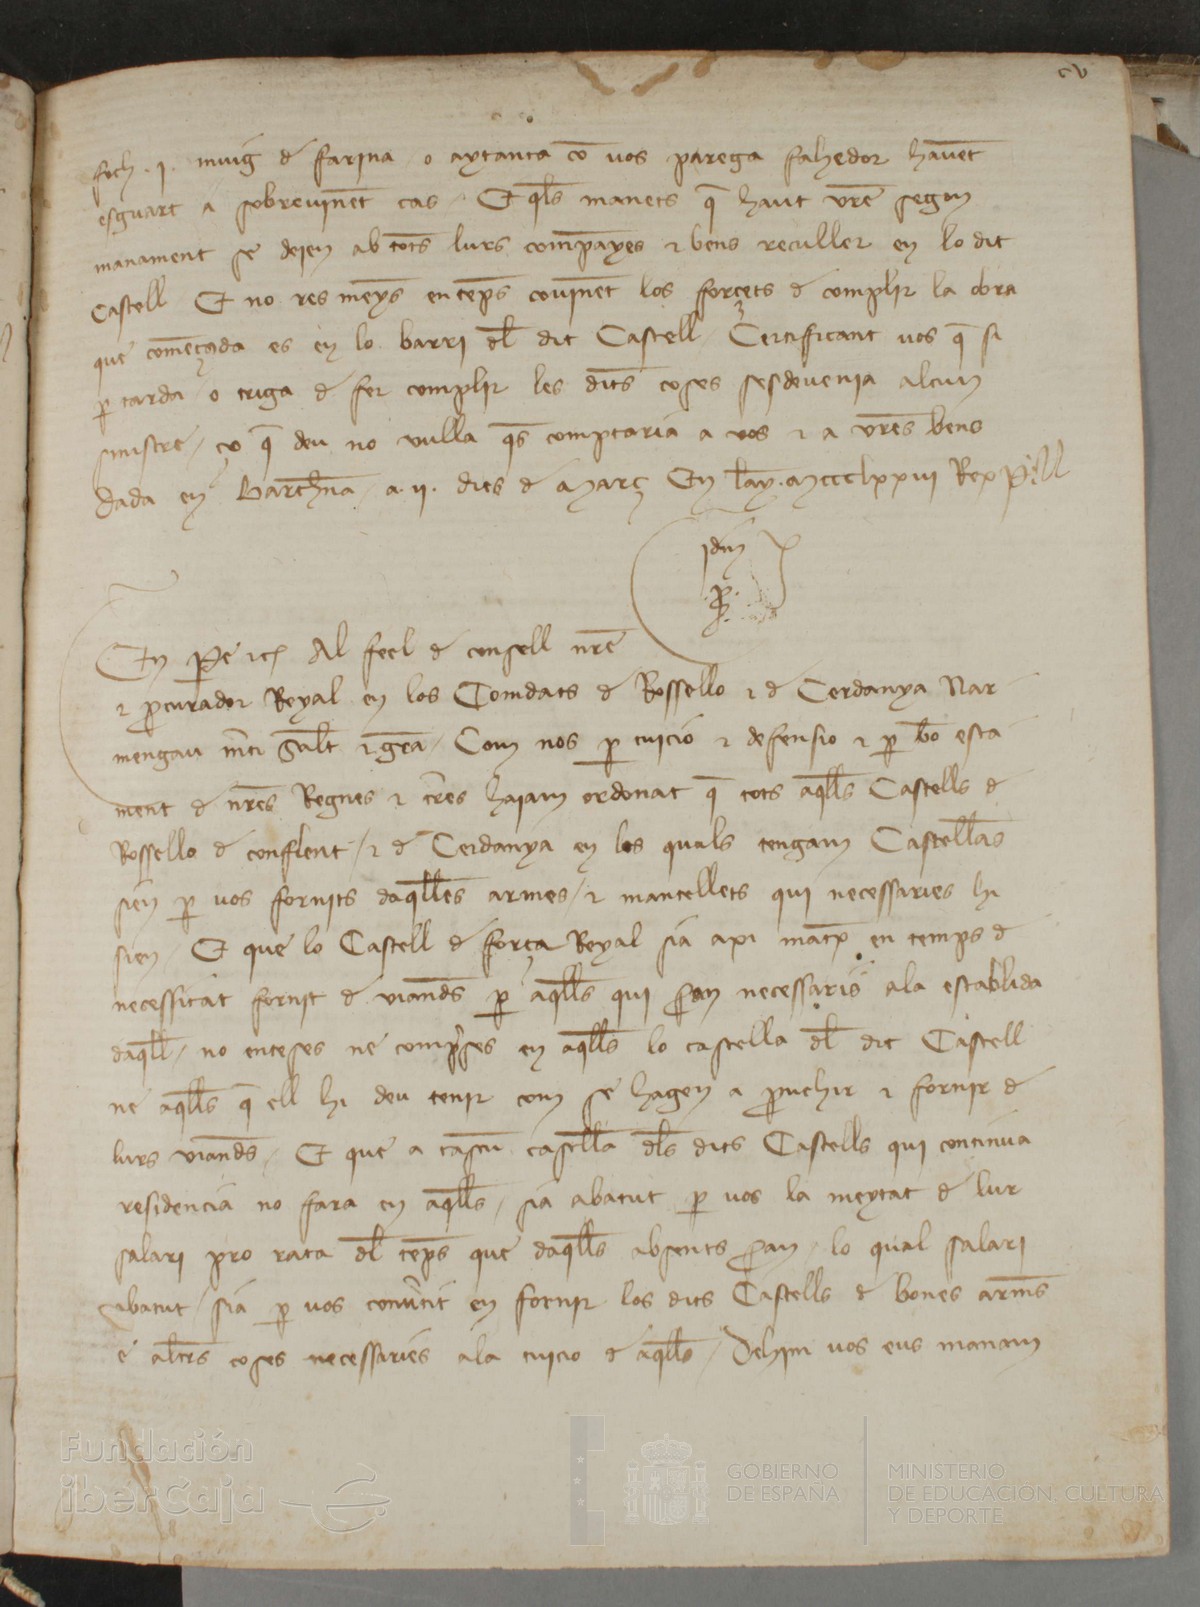 cv
foch .j. muig de farina o aytanta co vos parega fahedor havent
esguart a sobrevinent cas / Et qls manets q haut vre segon
manament se dejen ab tots lurs companyes & bens reculler en lo dit
Castell Et no res meyns en temps covinent los forcets de complir la obra
que començada es en lo barri dl dit Castell / Certificant vos q si
p tarda o triga de fer complir les dits coses sesdevenia alcun
sinistre / ço q deu no vulla qs comptaria a vos & a vres bens
Dada en Barchna a .ij. dies de març En lay .mccclxxvij Rex P
jdm
P.
En Pe etc Al feel de consell nre
& pcurador Reyal en los Comdats de Rossello & de Cerdanya Nar
mengau mti Salt & gra / Com nos p tuicio & defensio & p bo esta
ment de nres Regnes & tres hajam ordonat q tots aqlls Castells de
Rossello de conflent / & de Cerdanya en los quals tengam Castellas
sien p vos fornits daqlles armes / & mantellets qui necessaries hi
sien / Et que lo Castell de força Reyal sia axi matx en temps de
necessitat fornit de viands p aqlls qui sran necessaris ala establida
daqll / no enteses ne compses en aqlls lo castella dl dit Castell
ne aqlls q ell hi deu tenir com se hagen a pvehir & fornir de
lurs viands / Et que a cascu castella dls dits Castells qui continua
residencia no fara en aqlls / sia abatut p vos la meytat de lur
salari pro rata dl temps que daqlls absents sran / lo qual salari
abatut / sia p vos convtit en fornir los dits Castells de bones arms
e altres coses necessaries ala tuicio de aqlls / Dehim vos eus manam
Fundación
iberCaja
GOBIERNO
DE ESPAÑA
MINISTERIO
DE EDUCACIÓN, CULTURA
Y DEPORTE